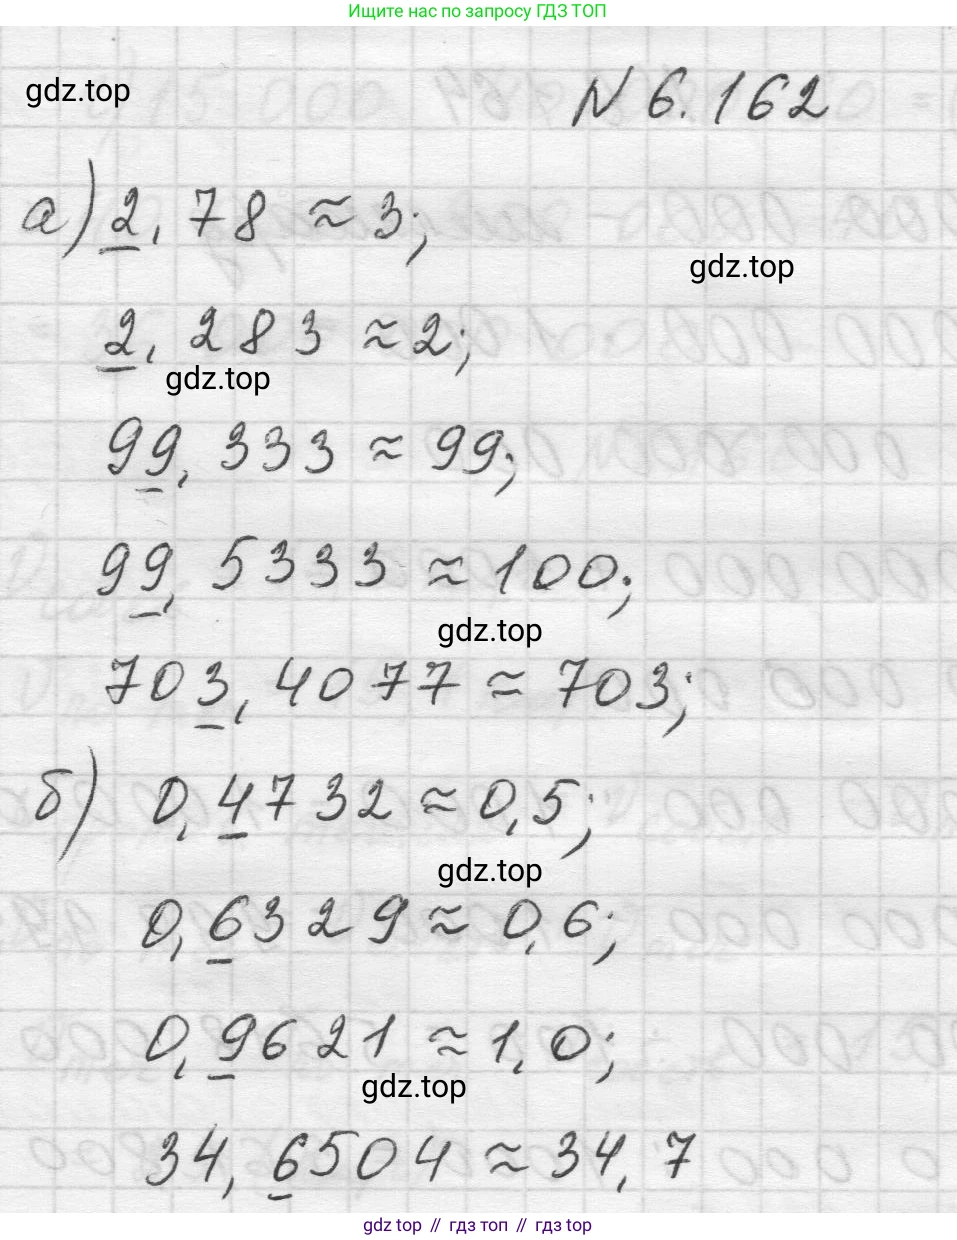 Ищите нас по запросу ГДЗ ТОП
gdz.top
N 6.162
а) 2,78 ≈ 3;
gdz.top
2,283 ≈ 2;
gdz.top
99,333 ≈ 99;
99,5333 ≈ 100;
gdz.top
703,4077 ≈ 703;
б) 0,4732 ≈ 0,5;
gdz.top
0,6329 ≈ 0,6;
0,9621 ≈ 1,0;
gdz.top
34,6504 ≈ 34,7
gdz top // гдз топ // gdz top